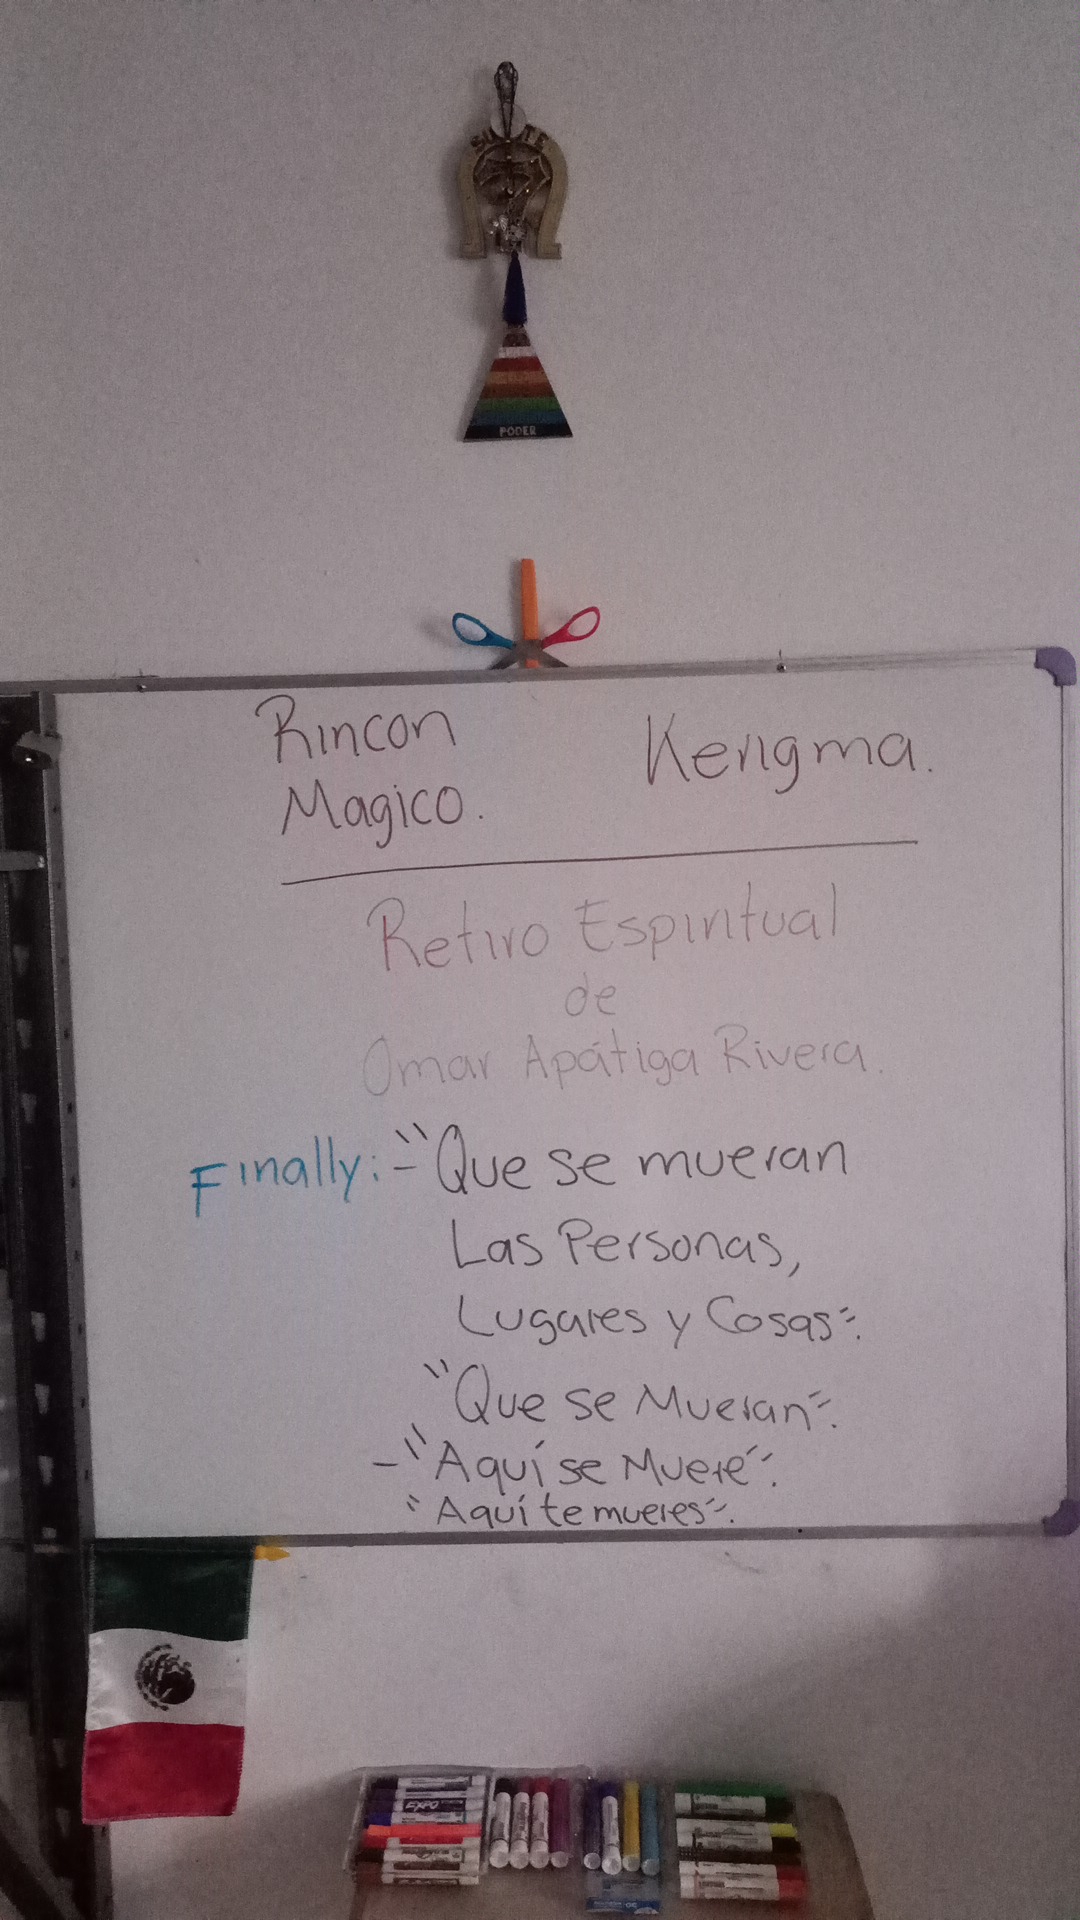 SUERTE
PODER
Rincon
Magico.
Kerigma.
Retiro Espiritual
de
Omar Apátiga Rivera.
Finally:-"Que se mueran
Las Personas,
Lugares y Cosas".
"Que se Mueran".
-"Aquí se Muere".
"Aquí te mueres".
EXPO